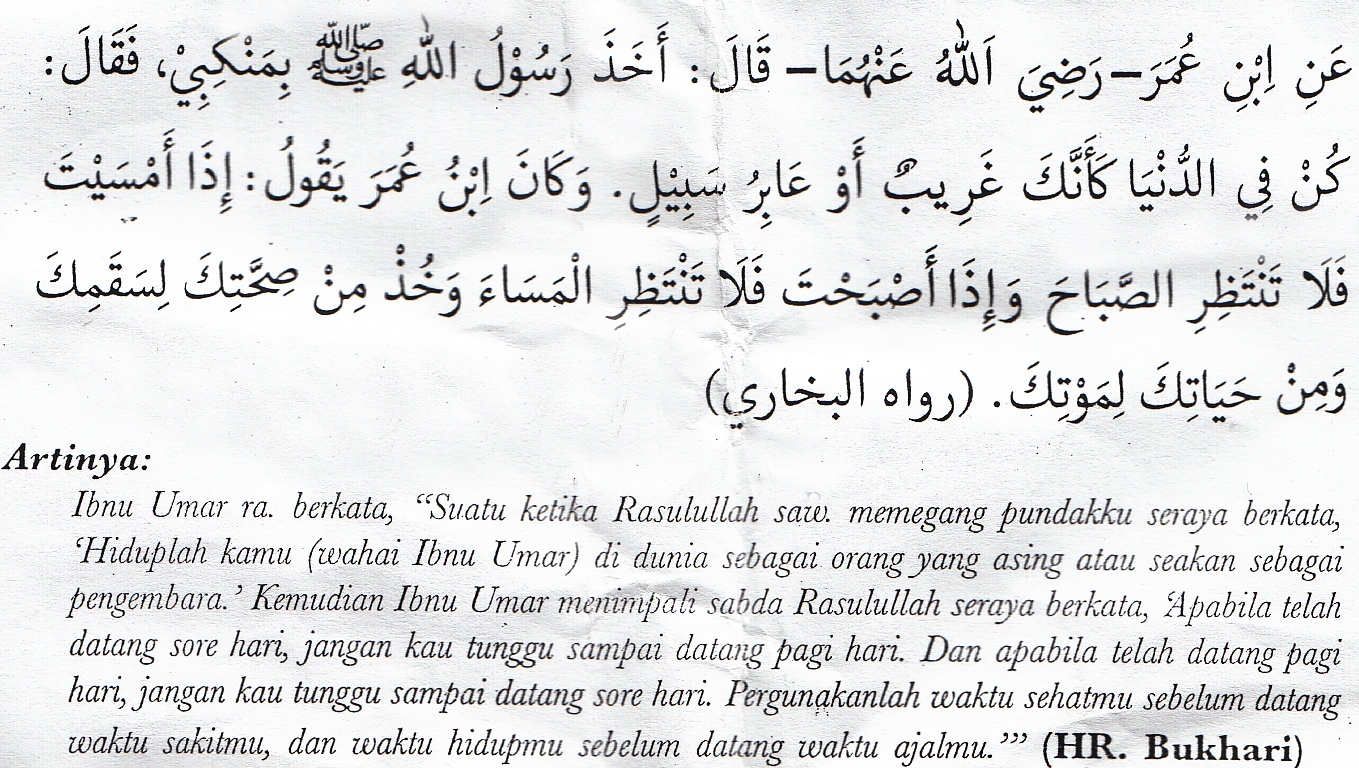 عَنِ اِبْنِ عُمَرَ–رَضِيَ اَللّٰهُ عَنْهُمَا– قَالَ: أَخَذَ رَسُوْلُ اللّٰهِ ﷺ بِمَنْكِبِيْ، فَقَالَ:
كُنْ فِي الدُّنْيَا كَأَنَّكَ غَرِيبٌ أَوْ عَابِرُ سَبِيْلٍ. وَكَانَ اِبْنُ عُمَرَ يَقُولُ: إِذَا أَمْسَيْتَ
فَلَا تَنْتَظِرِ الصَّبَاحَ وَإِذَا أَصْبَحْتَ فَلَا تَنْتَظِرِ الْمَسَاءَ وَخُذْ مِنْ صِحَّتِكَ لِسَقَمِكَ
وَمِنْ حَيَاتِكَ لِمَوْتِكَ. (رواه البخاري)
Artinya:
Ibnu Umar ra. berkata, “Suatu ketika Rasulullah saw. memegang pundakku seraya berkata,
‘Hiduplah kamu (wahai Ibnu Umar) di dunia sebagai orang yang asing atau seakan sebagai
pengembara.’ Kemudian Ibnu Umar menimpali sabda Rasulullah seraya berkata, ‘Apabila telah
datang sore hari, jangan kau tunggu sampai datang pagi hari. Dan apabila telah datang pagi
hari, jangan kau tunggu sampai datang sore hari. Pergunakanlah waktu sehatmu sebelum datang
waktu sakitmu, dan waktu hidupmu sebelum datang waktu ajalmu.’” (HR. Bukhari)